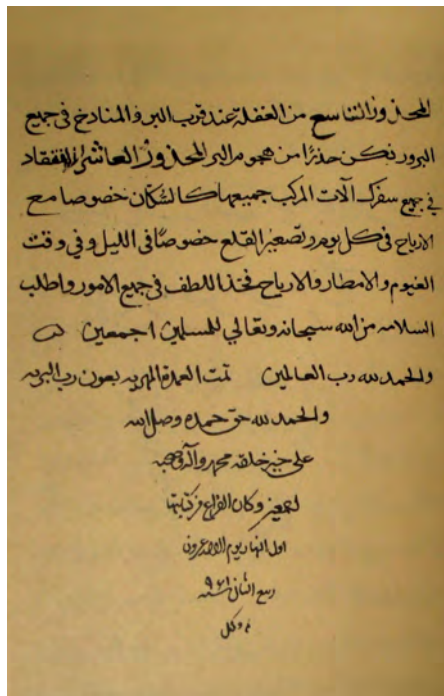 المحذور التاسع من الغفلة عند قرب البر والمنادخ في جميع
البرور تكن حذرًا من هجوم البر المحذور العاشر التفقاد
في جميع سفرك آلات المركب جميعها كالسكان خصوصا مع
الارياح في كل يوم وتصغير القلع خصوصًا في الليل وفي وقت
الغيوم والامطار والارياح فخذ اللطف في جميع الامور واطلب
السلامه من الله سبحانه وتعالي للمسلمين اجمعين
والحمد لله رب العالمين تمت العمدة المهريه بعون رب البريه
والحمد لله حق حمده وصل الله
على خير خلقه محمد وآله وصحبه
اجمعين وكان الفراغ من كتابتها
اول النهار يوم الاحد
ربيع الثاني سنة ٩٦١